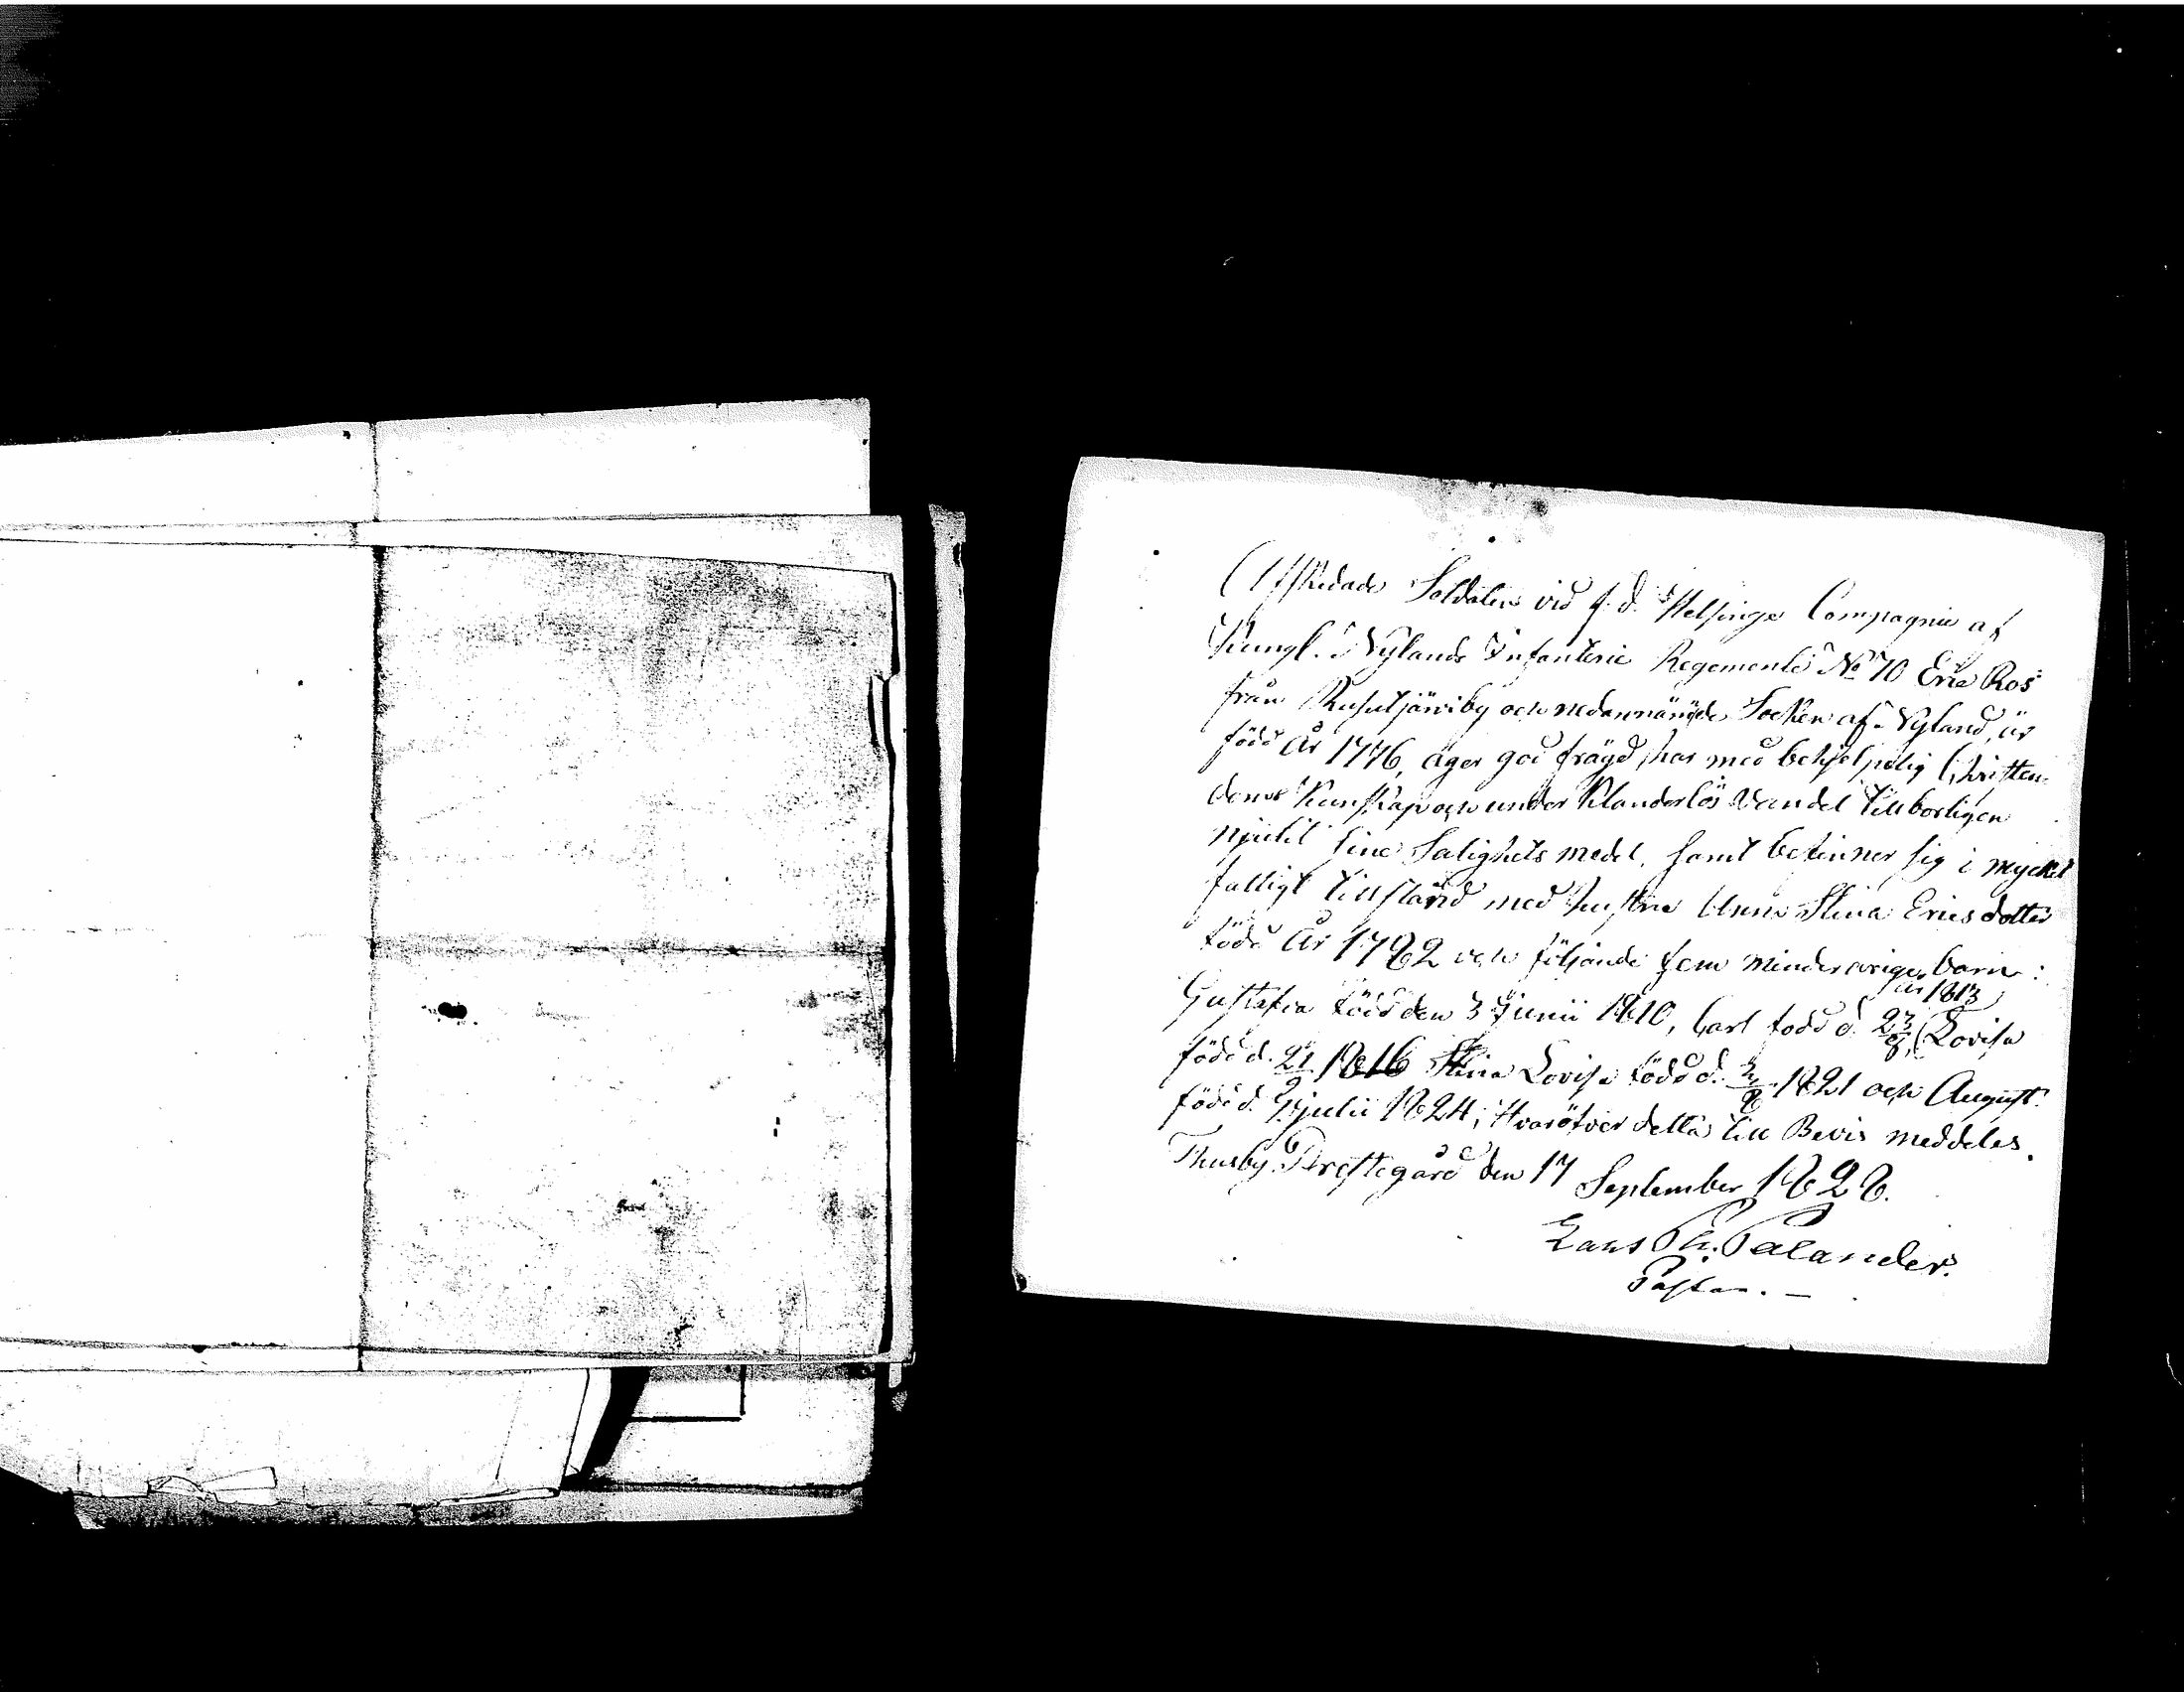 Afskedade Soldaten vid f. d. Helsinge Compagnie af
Kungl. Nylands Infanterie Regemente No 70 Eric Ros
från Rusutjärwiby och nedannämde Socken af Nyland, är
född År 1776, äger god frägd, har med behjelpelig Christen-
doms Kunskap och under Klanderlös Vandel tillbörligen
njutit sine Salighets medel, samt befinner sig i mycket
fattigt tillstånd med hustru Anna Stina Ericsdotter
född År 1782 och följande fem minderåriga barn:
Gustafva född den 3 Junii 1810, Carl född d. 23/8 år 1813, Lovisa
född d. 21/9 1816 Stina Lovisa född d. /8 1821 och August
född d. Julii 1824; Hvaröfver detta till Bevis meddeles.
Thusby Prestegård den 17 September 1828.
Lars Ph. Palander.
Pastor. —